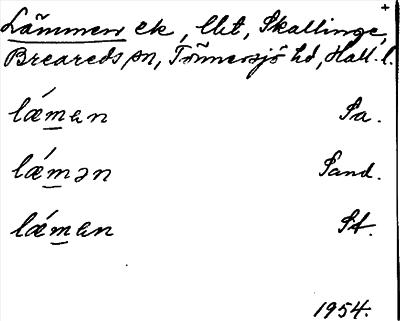 +
Lämmen ek, Ubt, Skallinge,
Breareds sn, Tönnersjö hd, Hall. l.
lǽmɐn Sa.
lǽmən Sand.
lǽmɐn St.
1954.